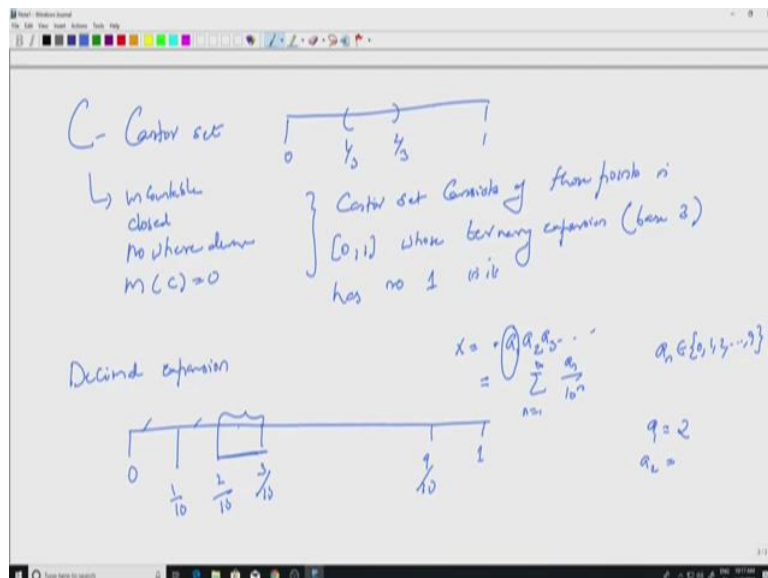 Note1 - Windows Journal
File Edit View Insert Actions Tools Help
C - Cantor set
0 1/3 2/3 1
↳ uncountable
closed
no where dense
m(C) = 0
} Cantor set consists of those points in
[0,1] whose ternary expansion (base 3)
has no 1 in it
Decimal expansion
x = .a₁a₂a₃...
= ∑ₙ₌₁^∞ aₙ/10ⁿ
aₙ ∈ {0,1,2,...,9}
0 1/10 2/10 3/10 9/10 1
a₁ = 2
a₂ =